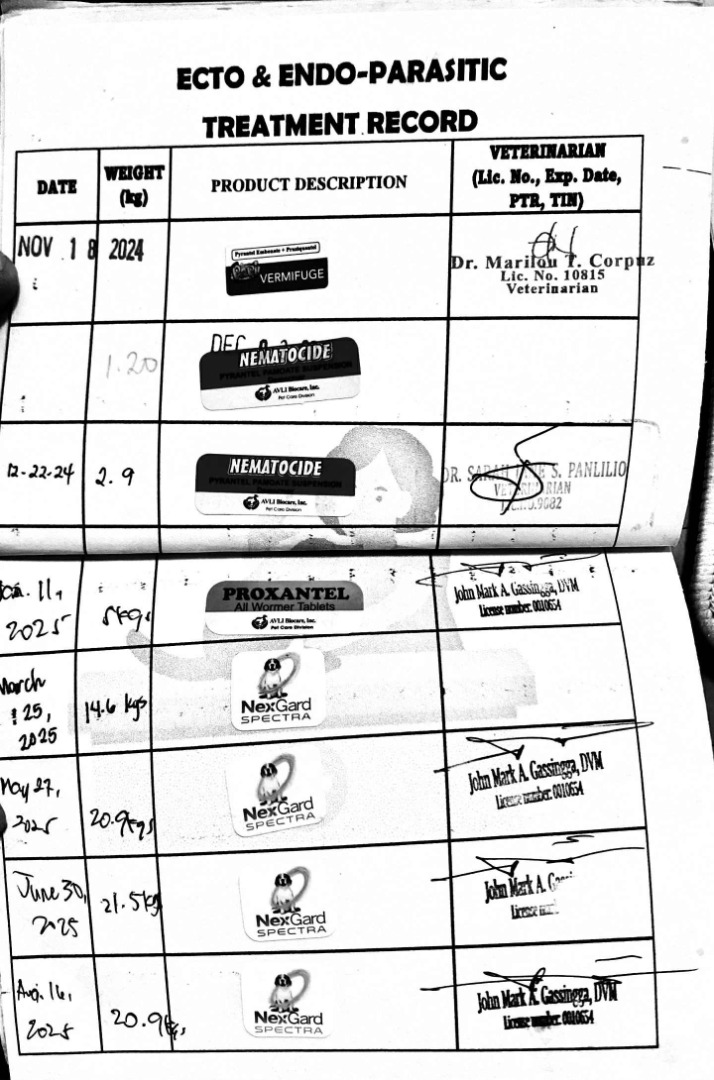 ECTO & ENDO-PARASITIC
TREATMENT RECORD
DATE
WEIGHT
(kg)
PRODUCT DESCRIPTION
VETERINARIAN
(Lic. No., Exp. Date,
PTR, TIN)
NOV 18 2024
Pyrantel Embonate + Praziquantel
VERMIFUGE
Dr. Marilou T. Corpuz
Lic. No. 10815
Veterinarian
1.20
DEC
NEMATOCIDE
PYRANTEL PAMOATE SUSPENSION
AVLI Biocare, Inc.
Pet Care Division
12-22-24
2.9
NEMATOCIDE
PYRANTEL PAMOATE SUSPENSION
AVLI Biocare, Inc.
Pet Care Division
DR. SARAH S. PANLILIO
VETERINARIAN
Jan. 11,
2025
5kgs
PROXANTEL
All Wormer Tablets
AVLI Biocare, Inc.
Pet Care Division
John Mark A. Gassingga, DVM
License number: 0010654
March
25,
2025
14.6 kgs
NexGard
SPECTRA
May 27,
2025
20.9kgs
NexGard
SPECTRA
John Mark A. Gassingga, DVM
License number: 0010654
June 30,
2025
21.5kg
NexGard
SPECTRA
John Mark A.
License
Aug. 16,
2025
20.9kgs
NexGard
SPECTRA
John Mark A. Gassingga, DVM
License number: 0010654